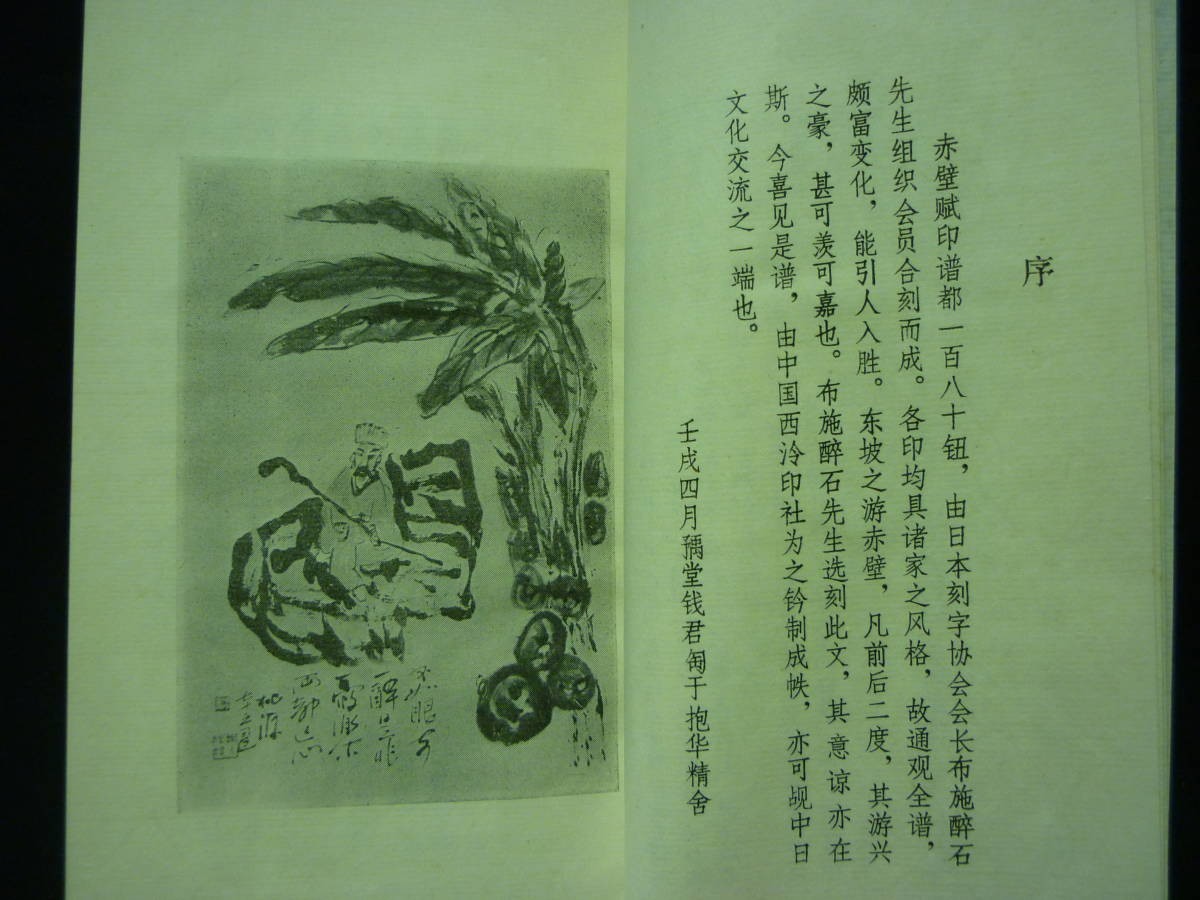 序
赤壁赋印谱都一百八十钮，由日本刻字协会会长布施醉石
先生组织会员合刻而成。各印均具诸家之风格，故通观全谱，
颇富变化，能引人入胜。东坡之游赤壁，凡前后二度，其游兴
之豪，甚可羡可嘉也。布施醉石先生选刻此文，其意谅亦在
斯。今喜见是谱，由中国西泠印社为之钤制成帙，亦可觇中日
文化交流之一端也。
壬戌四月豫堂钱君匋于抱华精舍